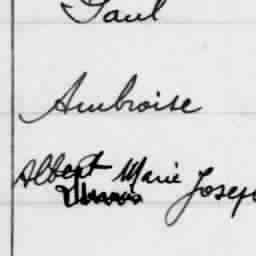 Paul
Ambroise
Albert Marie Joseph